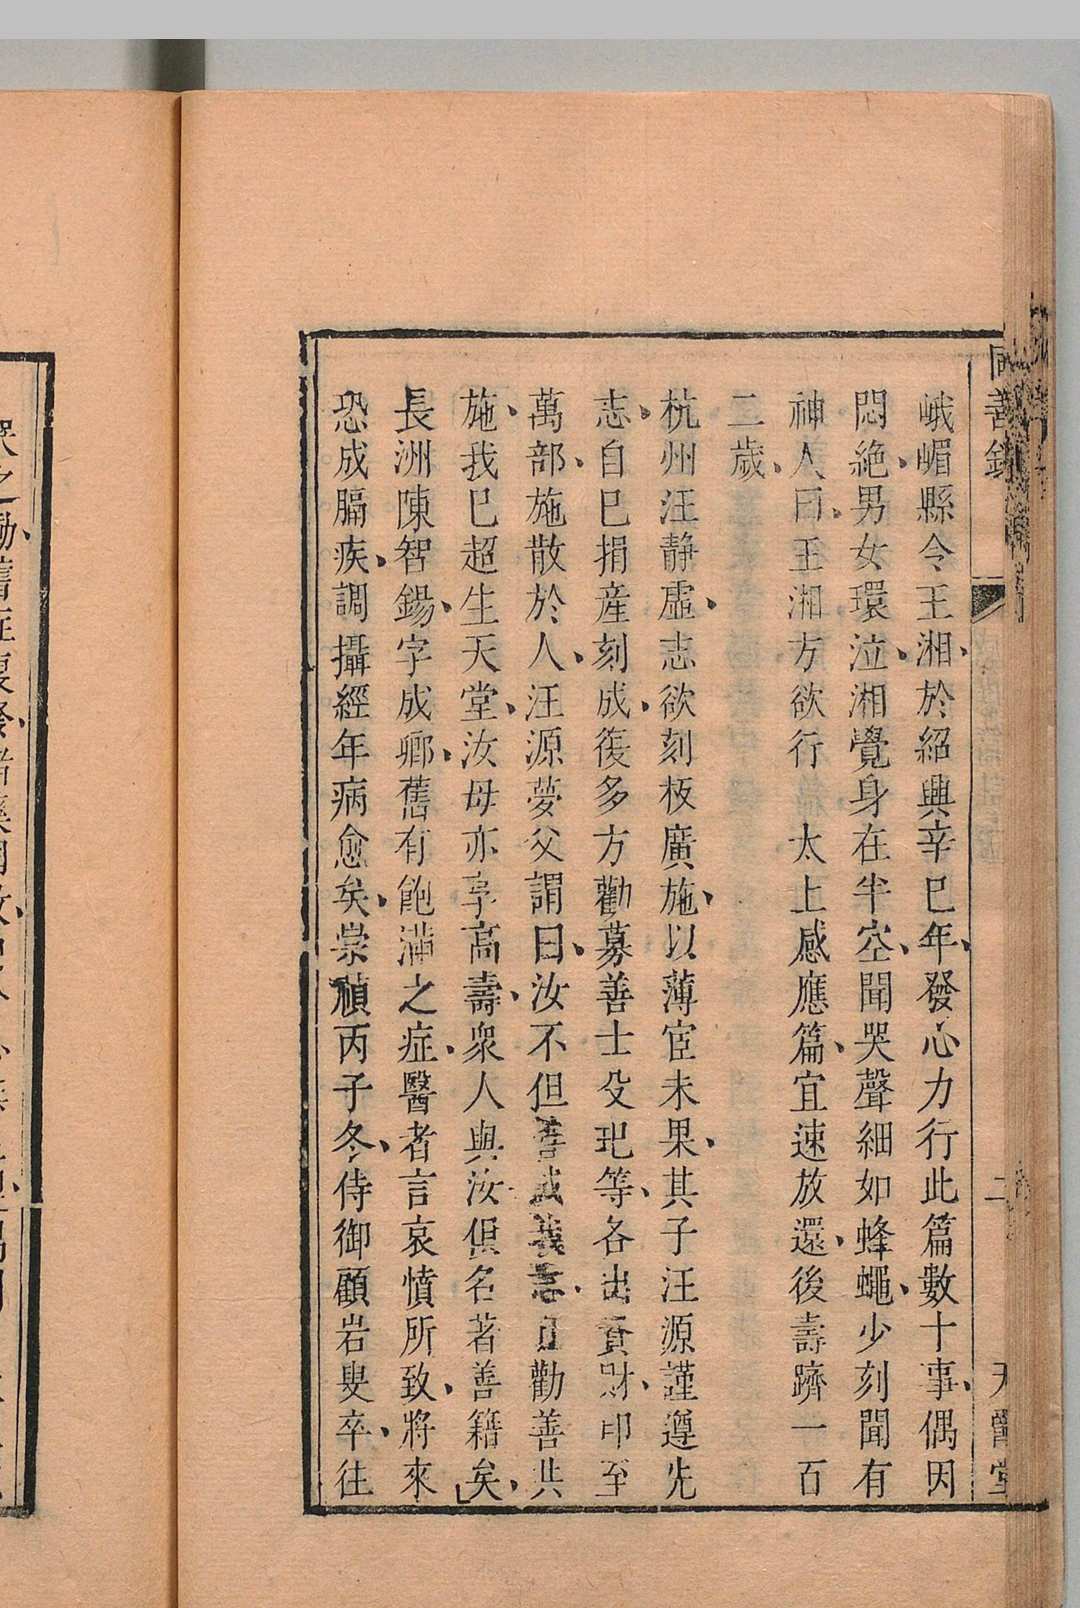 善錄
二
峨嵋縣令王湘、於紹興辛巳年、發心力行此篇數十事、偶因
悶絕、男女環泣、湘覺身在半空、聞哭聲細如蜂蠅、少刻聞有
神人曰、王湘方欲行 太上感應篇、宜速放還、後壽躋一百
二歲、
杭州汪静虛、志欲刻板廣施、以薄宦未果、其子汪源謹遵先
志、自巳捐產刻成、復多方勸募善士殳玘等、各出資財、印至
萬部、施散於人、汪源夢父謂曰、汝不但善勸善共
施、我巳超生天堂、汝母亦享高壽、衆人與汝俱名著善籍矣、
長洲陳智錫、字成卿、舊有飽滿之症、醫者言哀憤所致、將來
恐成膈疾、調攝經年病愈矣、崇禎丙子冬、侍御顧岩叟卒、往